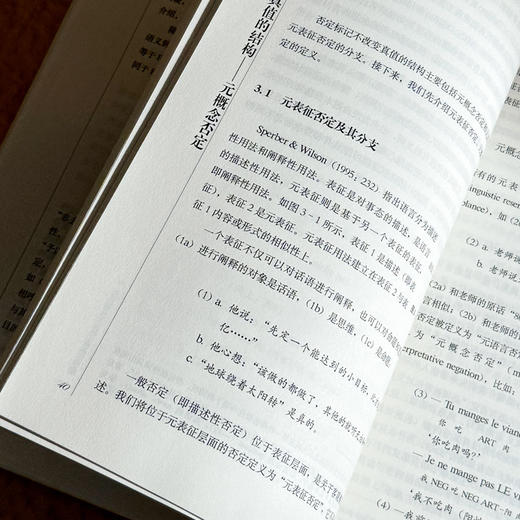 真值的结构——元概念否定
否定标记不改变真值的结构主要包括元概念否定和
元表征否定的分支。接下来，我们先介绍元表征否定
定的定义。
3.1 元表征否定及其分支
Sperber & Wilson（1995：232）指出语言分为描述
性用法和阐释性用法。表征是对事态的描述，是语言
的描述性用法，元表征则是基于另一个表征的表征，
即阐释性用法。如图3-1所示，表征1是描述（即表
征），表征2是元表征。元表征用法建立在表征2与表
征1内容或形式的相似性上。
一个表征不仅可以对话语进行阐释，也可以对
（1a）进行阐释的对象是话语，（1b）是思维，（1c）是命题。
（1）a. 他说：“先定一个能达到的小目标，
亿……”
b. 他心想：“该做的都做了，其他的就听天
c. “地球绕着太阳转”是真的。
一般否定（即描述性否定）位于表征层面，是关于客观
述。我们将位于元表征层面的否定定义为“元表征否定”，
40
有的元表
nguistic resen
blance)，如（2
（2）a. 老师说
b. 老师说
（2a）和老师的原话
言相似；（2b）和老师的
否定被定义为“元语言否
为“元概念否定”（m
erpretative negation)，比如：
（3）— Tu manges le viand
你 吃 ART 肉
‘你吃肉吗？’
— Je ne mange pas LE v
我 NEG 吃 NEG ART-阳 肉
‘我不吃肉（阳
（4）— 我